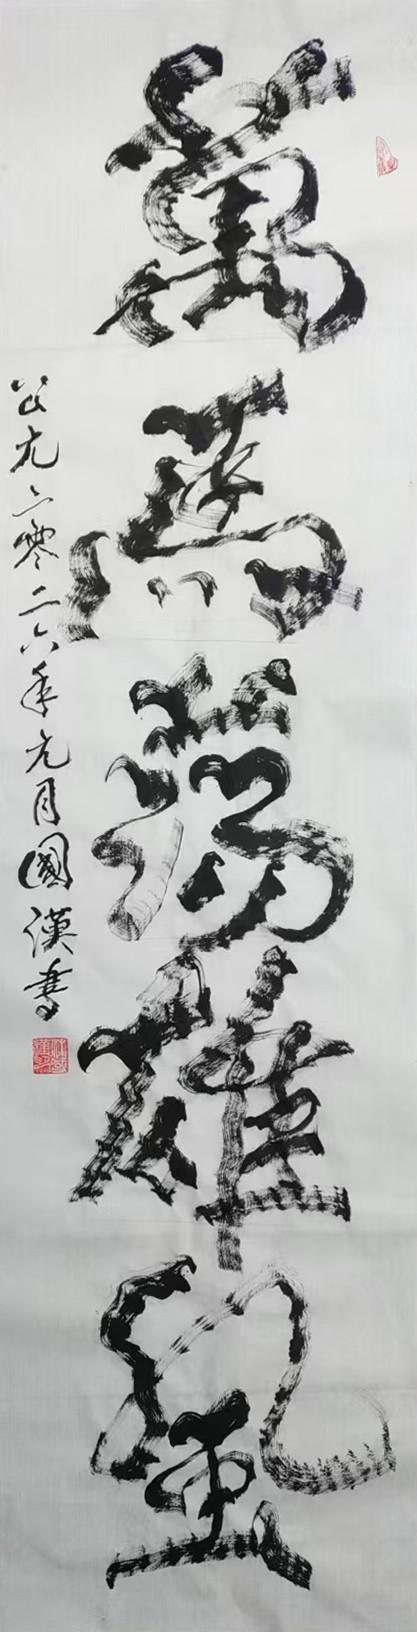 萬馬蕩雄風
公元二零二六年元月國漢書